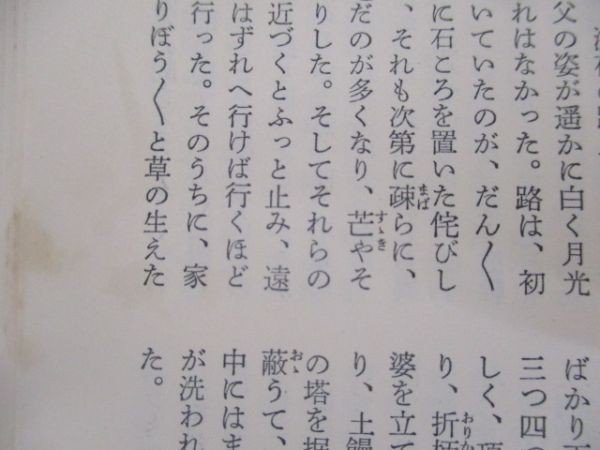 父の姿が遥かに白く月光
れはなかった。路は、初
いていたのが、だん〳〵
に石ころを置いた侘びし
、それも次第に疎らに、
だのが多くなり、芒やそ
りした。そしてそれらの
近づくとふっと止み、遠
はずれへ行けば行くほど
行った。そのうちに、家
りぼう〳〵と草の生えた
ばかり
三つ四つ
しく、
り、折
婆を立て
り、土饅
の塔を
蔽うて、
中にはま
が洗われ
た。